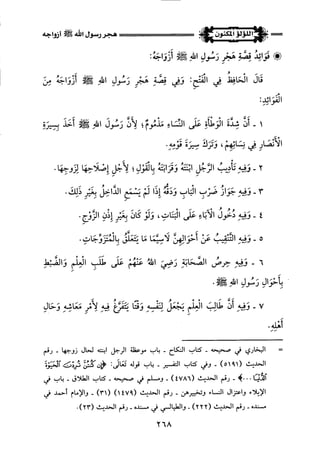 اللؤلؤ المكنون
هجر رسول الله ﷺ أزواجه
فَوَائِدُ قِصَّةِ هَجْرِ رَسُولِ اللهِ ﷺ أَزْوَاجَهُ:
قَالَ الْحَافِظُ فِي الْفَتْحِ: وَفِي قِصَّةِ هَجْرِ رَسُولِ اللهِ ﷺ أَزْوَاجَهُ مِنَ
الْفَوَائِدِ:
١ - أَنَّ شِدَّةَ الْوَطْأَةِ عَلَى النِّسَاءِ مَذْمُومٌ؛ لِأَنَّ رَسُولَ اللهِ ﷺ أَخَذَ بِسِيرَةِ
الْأَنْصَارِ فِي نِسَائِهِمْ، وَتَرَكَ سِيرَةَ قَوْمِهِ.
٢ - وَفِيهِ تَأْدِيبُ الرَّجُلِ ابْنَتَهُ وَقَرَابَتَهُ بِالْقَوْلِ؛ لِأَجْلِ إِصْلَاحِهَا لِزَوْجِهَا.
٣ - وَفِيهِ جَوَازُ ضَرْبِ الْبَابِ وَدَقِّهِ إِذَا لَمْ يَسْمَعِ الدَّاخِلُ بِغَيْرِ ذَلِكَ.
٤ - وَفِيهِ دُخُولُ الْآبَاءِ عَلَى الْبَنَاتِ، وَلَوْ كَانَ بِغَيْرِ إِذْنِ الزَّوْجِ.
٥ - وَفِيهِ التَّنْقِيبُ عَنْ أَحْوَالِهِنَّ لَاسِيَّمَا مَا يَتَعَلَّقُ بِالْمُتَزَوِّجَاتِ.
٦ - وَفِيهِ حِرْصُ الصَّحَابَةِ رَضِيَ اللهُ عَنْهُمْ عَلَى طَلَبِ الْعِلْمِ وَالضَّبْطِ
بِأَحْوَالِ رَسُولِ اللهِ ﷺ.
٧ - وَفِيهِ أَنَّ طَالِبَ الْعِلْمِ يَجْعَلُ لِنَفْسِهِ وَقْتًا يَتَفَرَّغُ فِيهِ لِأَمْرِ مَعَاشِهِ وَحَالِ
أَهْلِهِ.
= البخاري في صحيحه - كتاب النكاح - باب موعظة الرجل ابنته لحال زوجها - رقم
الحديث (٥١٩١) - وفي كتاب التفسير - باب قوله تَعَالَى: ﴿إِن كُنتُنَّ تُرِدْنَ الْحَيَوٰةَ
الدُّنْيَا...﴾ - رقم الحديث (٤٧٨٦) - ومسلم في صحيحه - كتاب الطلاق - باب في
الإيلاء واعتزال النساء وتخييرهن - رقم الحديث (١٤٧٩) (٣١) - والإمام أحمد في
مسنده - رقم الحديث (٢٢٢) - والطيالسي في مسنده - رقم الحديث (٢٣).
٢٦٨